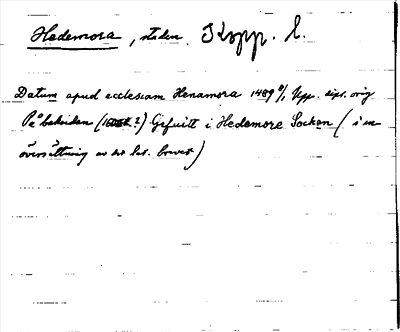 Hedemora, staden Kopp. l.
Datum apud ecclesiam Henamora 1489 9/1 Upps. dipl. orig
På baksidan (1600t?) Gifuitt i Hedemore Socken (i en
översättning av det lat. brevet)